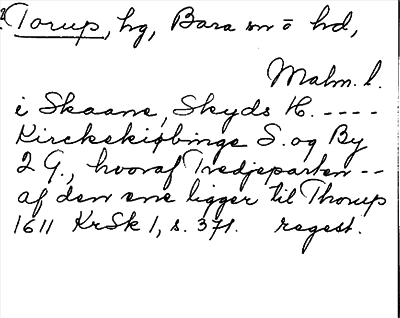 Torup, hg, Bara sn o hd,
Malm. l.
i Skaane, Skyds H. ----
Kirckekiøbinge S. og By
2 G., hvoraf Tredjeparten --
af den ene ligger til Thorup
1611 KrSk 1, s. 371. regest.